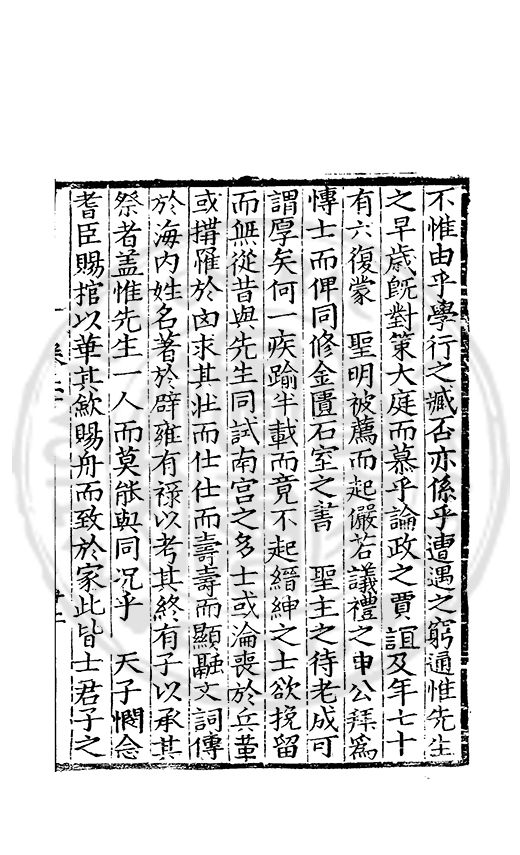 不惟由乎學行之臧否亦係乎遭遇之窮通惟先生
之早歳旣對策大庭而慕乎論政之賈誼及年七十
有六復蒙　聖明被薦而起儼若議禮之申公拜爲
博士而俾同修金匱石室之書　聖主之待老成可
謂厚矣何一疾踰半載而竟不起縉紳之士欲挽留
而無從昔與先生同試南宫之多士或淪喪於兵革
或搆罹於凶求其壯而仕仕而壽壽而顯融文詞傳
於海内姓名著於辟雍有禄以考其終有子以承其
祭者盖惟先生一人而莫能與同况乎　天子憫念
耆臣賜棺以華其歛賜舟而致於家此皆士君子之